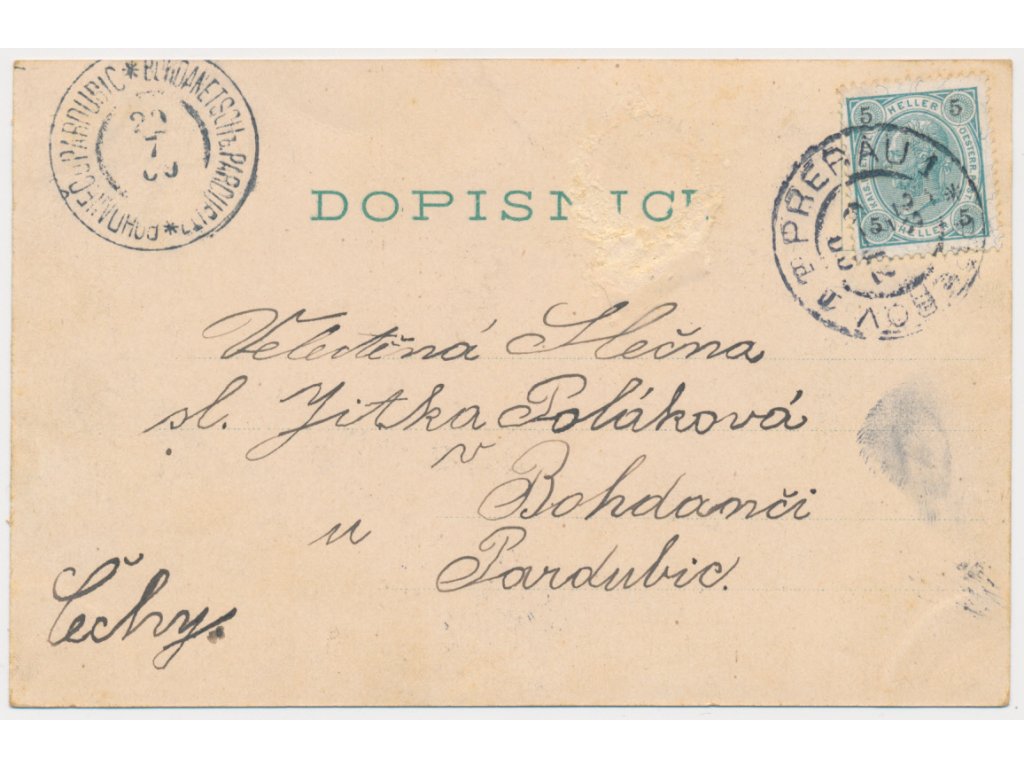 BOHDANEČ u PARDUBIC * BOHDANETSCH b. PARDUBITZ *
7
5 HELLER 5
5 HELLER 5
PRERAU 1
DOPISNICE
Velectěná Slečna
sl. Jitka Poláková
v
Bohdanči
u
Pardubic.
Čechy.